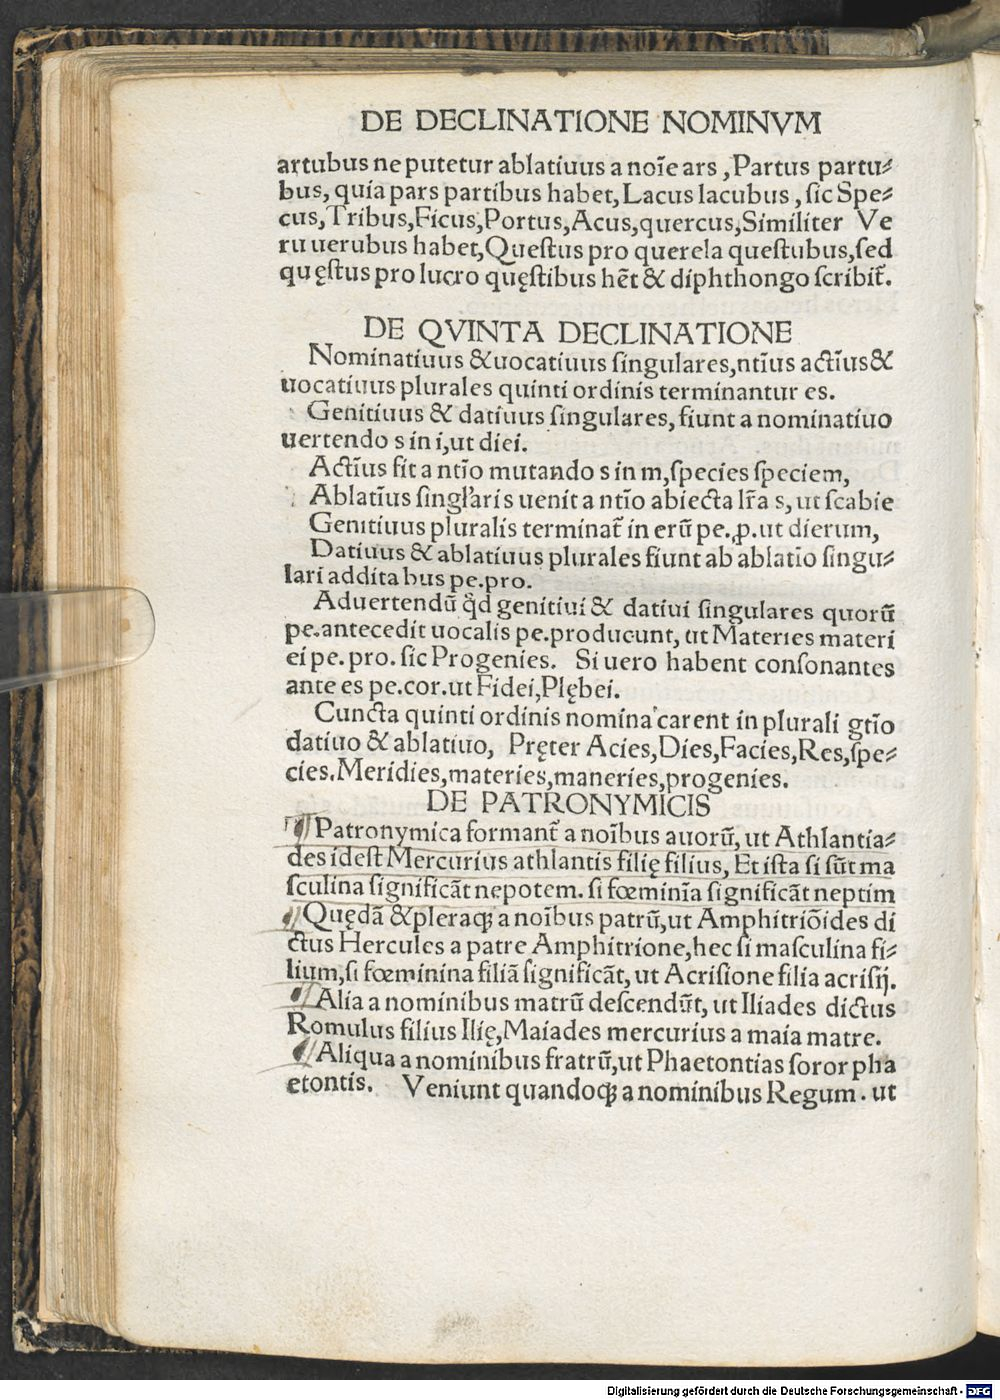 DE DECLINATIONE NOMINVM
artubus ne putetur ablatiuus a noīe ars , Partus partu⸗
bus, quia pars partibus habet, Lacus lacubus , sic Spe⸗
cus, Tribus, Ficus, Portus, Acus, quercus, Similiter Ve
ru uerubus habet, Questus pro querela questubus, sed
quęstus pro lucro quęstibus hēt & diphthongo scribit̄.
DE QVINTA DECLINATIONE
Nominatiuus & uocatiuus singulares, ntīus actīus &
uocatiuus plurales quinti ordinis terminantur es.
Genitiuus & datiuus singulares, fiunt a nominatiuo
uertendo s in i, ut diei.
Actīus fit a ntīo mutando s in m, species speciem,
Ablatīus singl̄aris uenit a ntīo abiecta lr̄a s, ut scabie
Genitiuus pluralis terminat̄ in erū pe. ꝓ. ut dierum,
Datiuus & ablatiuus plurales fiunt ab ablatīo singu⸗
lari addita bus pe. pro.
Aduertendū qd̄ genitiui & datiui singulares quorū
pe. antecedit uocalis pe. producunt, ut Materies materi
ei pe. pro. sic Progenies. Si uero habent consonantes
ante es pe. cor. ut Fidei, Plębei.
Cuncta quinti ordinis nomina carent in plurali gtīo
datiuo & ablatiuo, Pręter Acies, Dies, Facies, Res, spe⸗
cies. Meridies, materies, maneries, progenies.
DE PATRONYMICIS
¶ Patronymica formant̄ a noībus auorū, ut Athlantia⸗
des idest Mercurius athlantis filię filius, Et ista si sūt ma
sculina significāt nepotem. si fœminīa significāt neptim
¶ Quędā & pleraqꝫ a noībus patrū, ut Amphitriōides di
ctus Hercules a patre Amphitrione, hec si masculina fi⸗
lium, si fœminina filiā significāt, ut Acrisione filia acrisij.
¶ Alia a nominibus matrū descendūt, ut Iliades dictus
Romulus filius Ilię, Maiades mercurius a maia matre.
¶ Aliqua a nominibus fratrū, ut Phaetontias soror pha
etontis. Veniunt quandoqꝫ a nominibus Regum . ut
Digitalisierung gefördert durch die Deutsche Forschungsgemeinschaft - DFG